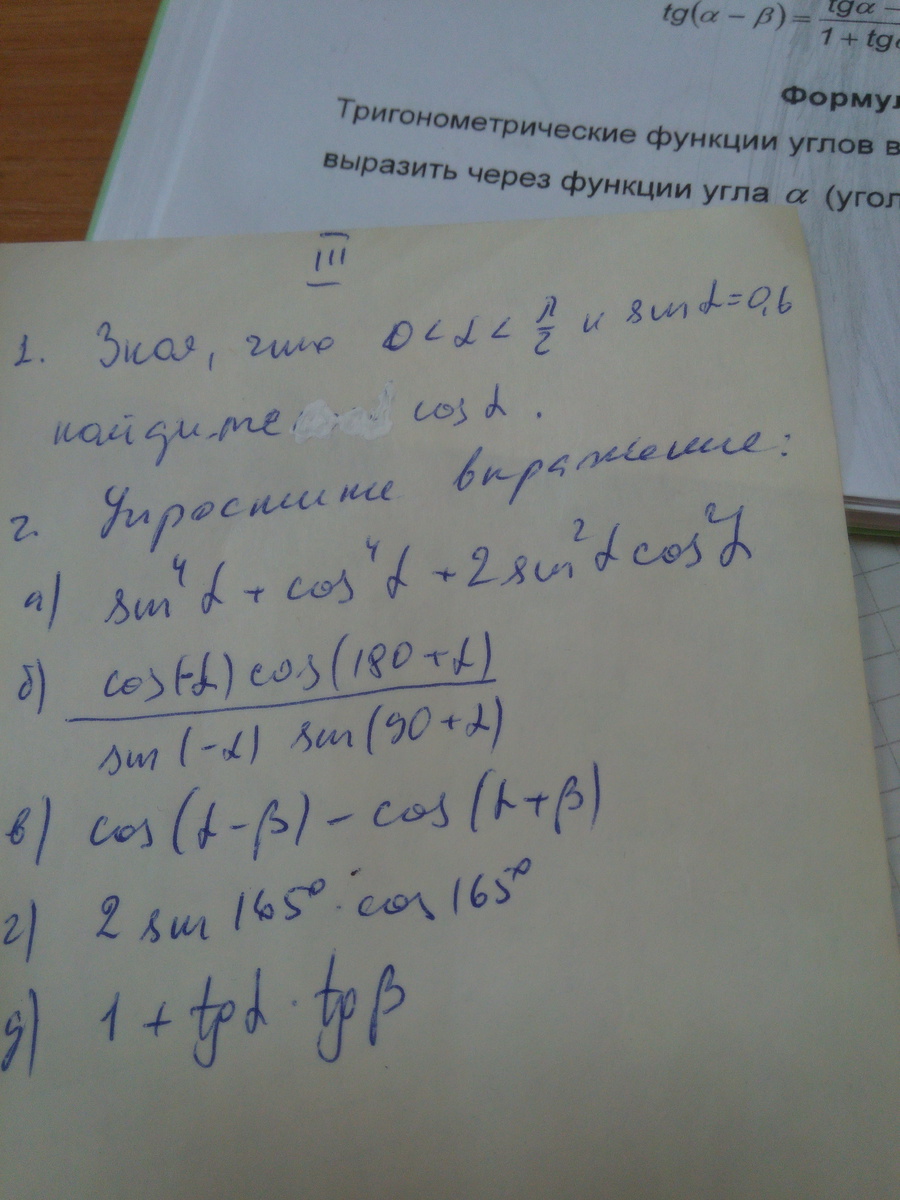 tg(α − β) = tgα −
1 + tg
Формул
Тригонометрические функции углов в
выразить через функции угла α (угол
III
1. Зная, что 0 < α < π/2 и sin α = 0,6
найдите cos α.
2. Упростите выражение:
а) sin⁴α + cos⁴α + 2 sin²α cos²α
б) cos(-α) cos(180 + α)
sin(-α) sin(90 + α)
в) cos(α - β) - cos(α + β)
г) 2 sin 165° · cos 165°
д) 1 + tgα · tgβ